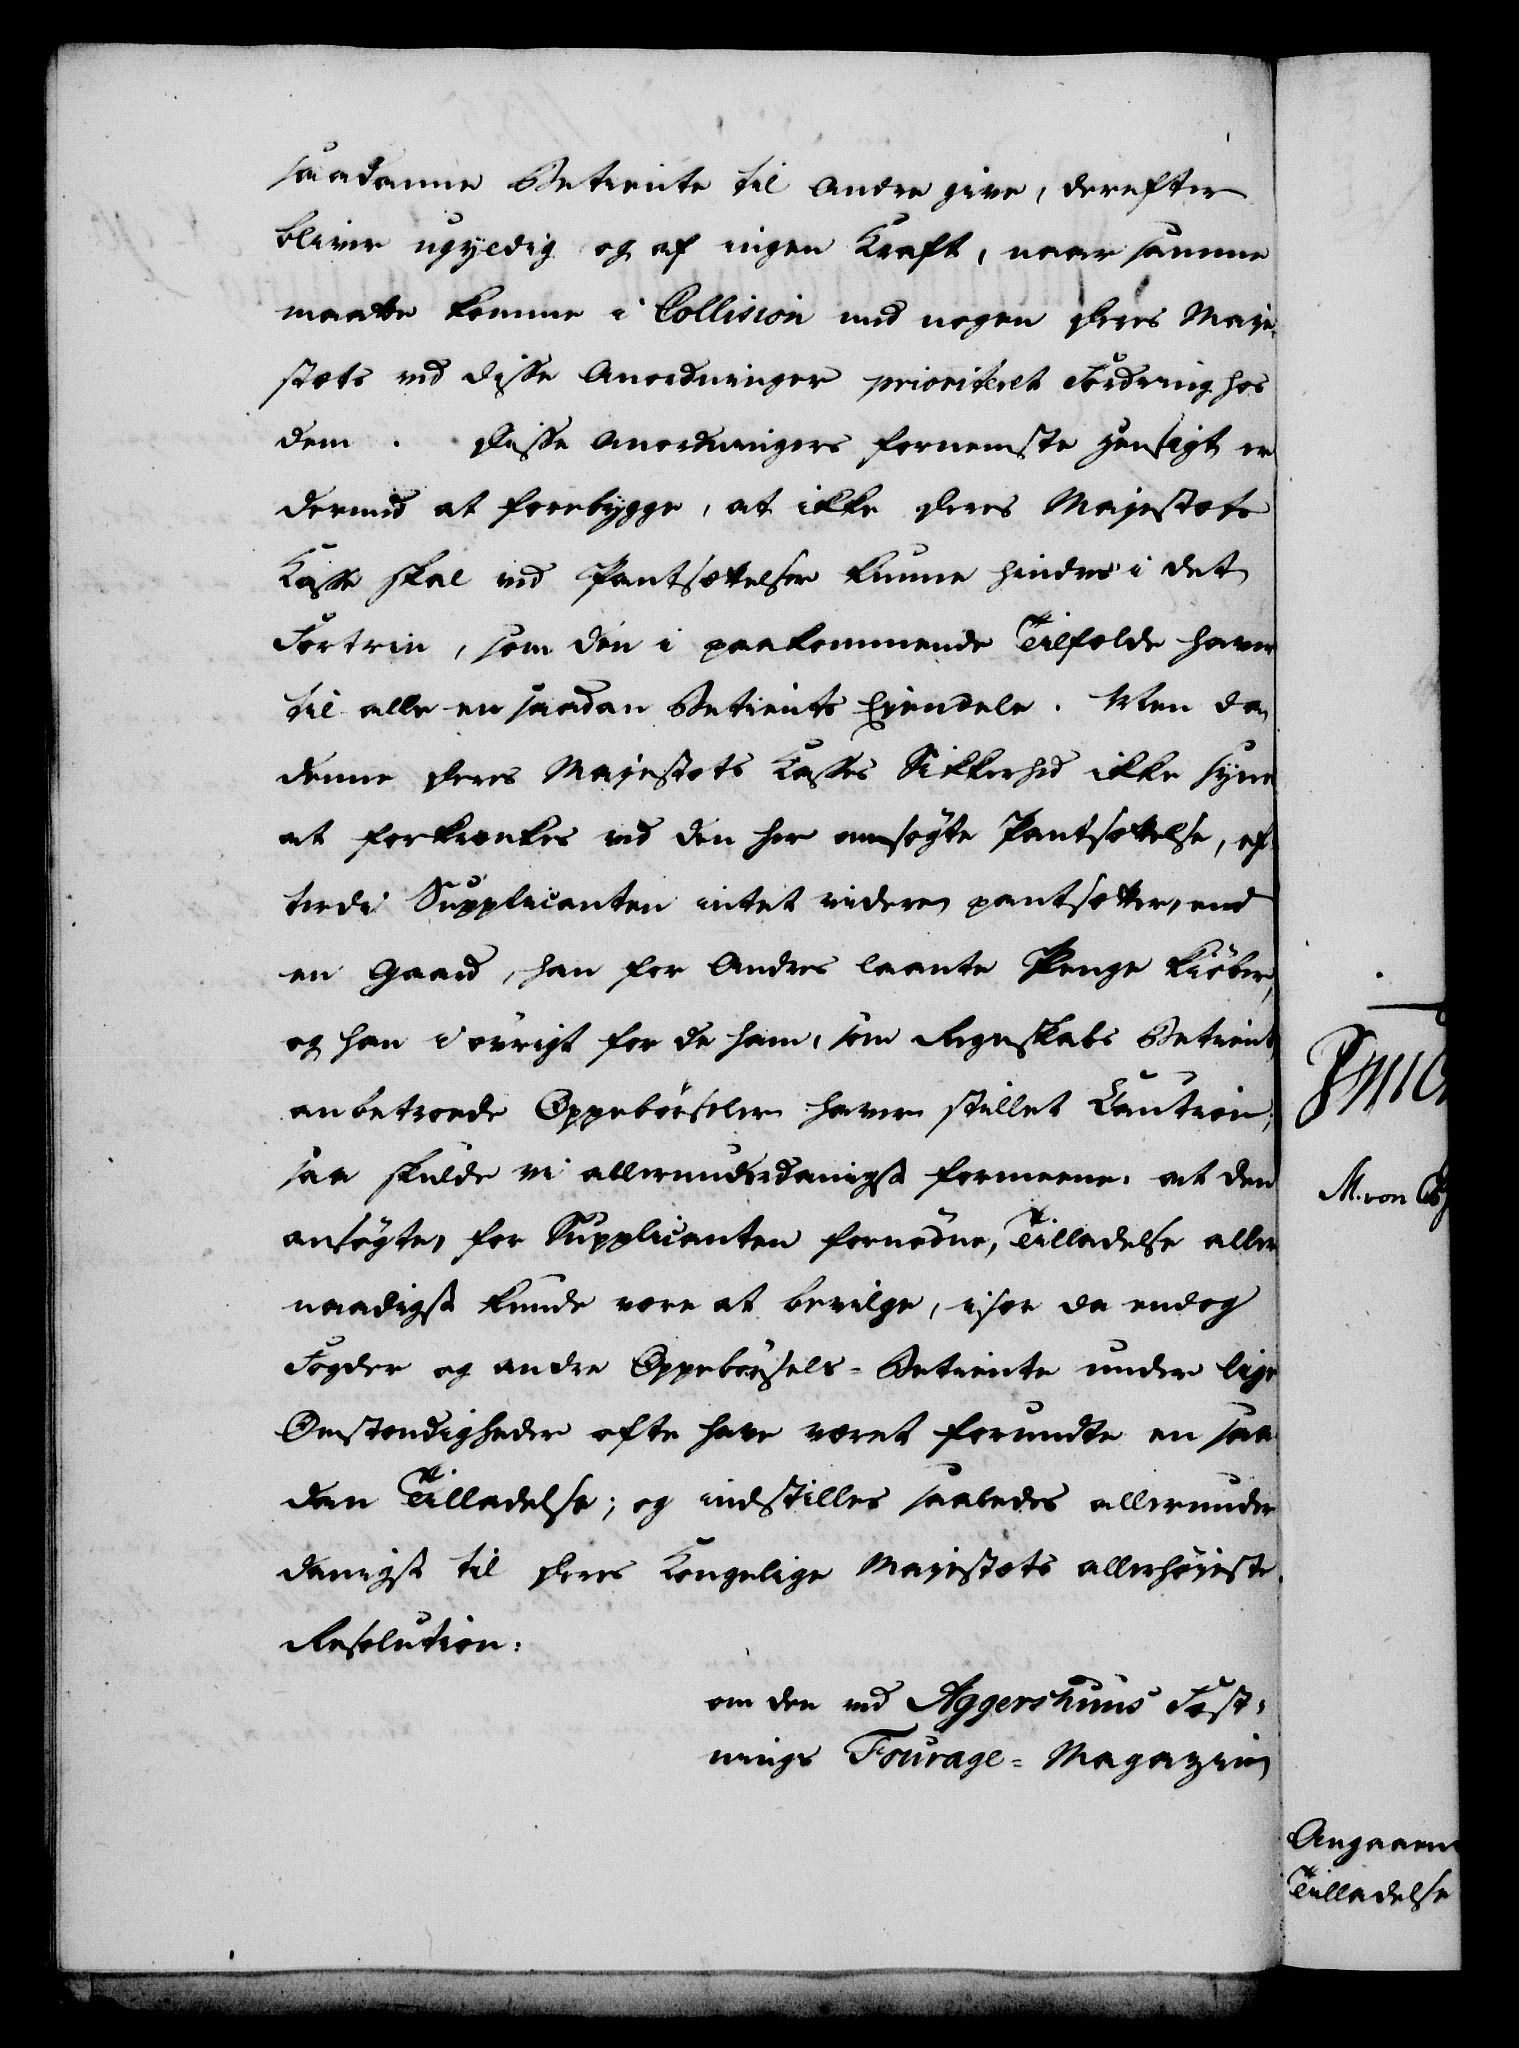 saadanne Betiente til andre give, derefter
bliver ugyldig og af ingen Kraft, naar samme
maatte komme i Collision med nogen Deres Maje-
stæts ved disse Anordninger prioriteret Fordring hos
dem. Disse Anordningers fornemste Hensigt er
dermed at forebygge, at ikke Deres Majestæts
Kasse skal ved Pantsættelser kunne hindres i det
Fortrin, som den i paakommende Tilfælde haver
til alle en saadan Betients Eiendele. Men da
denne Deres Majestæts Kasses Sikkerhed ikke synes
at forkrænkes ved den her ansøgte Pantsættelse, ef-
terdi Supplicanten intet videre pantsætter, end
en Gaard, han for Andres laante Penge kiøber,
og han i øvrigt for de ham, som Regnskabs Betient
anbetroede Oppebørseler haver stillet Caution;
saa skulde vi allerunderdanigst formeene, at den
ansøgte, for Supplicanten fornødne, Tilladelse aller-
naadigst kunde være at bevilge, især da endog
Fogder og andre Oppebørsels-Betiente under lige
Omstændigheder ofte have været forundte en saa-
dan Tilladelse; og indstilles saaledes allerunder-
danigst til Deres Kongelige Majestæts allerhøjeste
Resolution:
om den ved Aggershuus Fæst-
nings Fourage-Magazin
M. von
Angaaen
Tilladelse